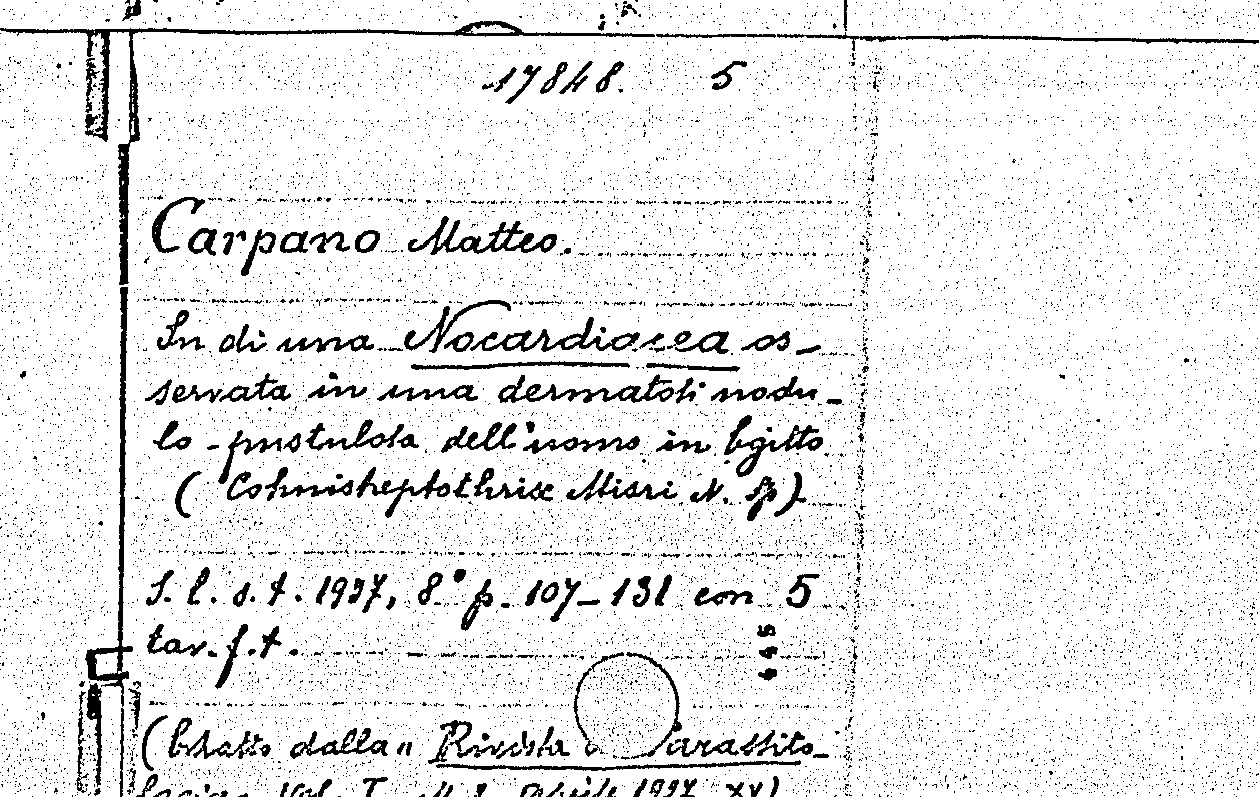 17848. 5
Carpano Matteo.
In di una Nocardiacea os-
servata in una dermatosi nodu-
lo-pustulosa dell'uomo in Egitto
(Cohnistreptothrix Misri N. sp)
S. l. s. t. 1937, 8° p. 107-131 con 5
tav. f. t.
645
(Estratto dalla " Rivista Parassito-
Vol. I Aprile 1937 XV)